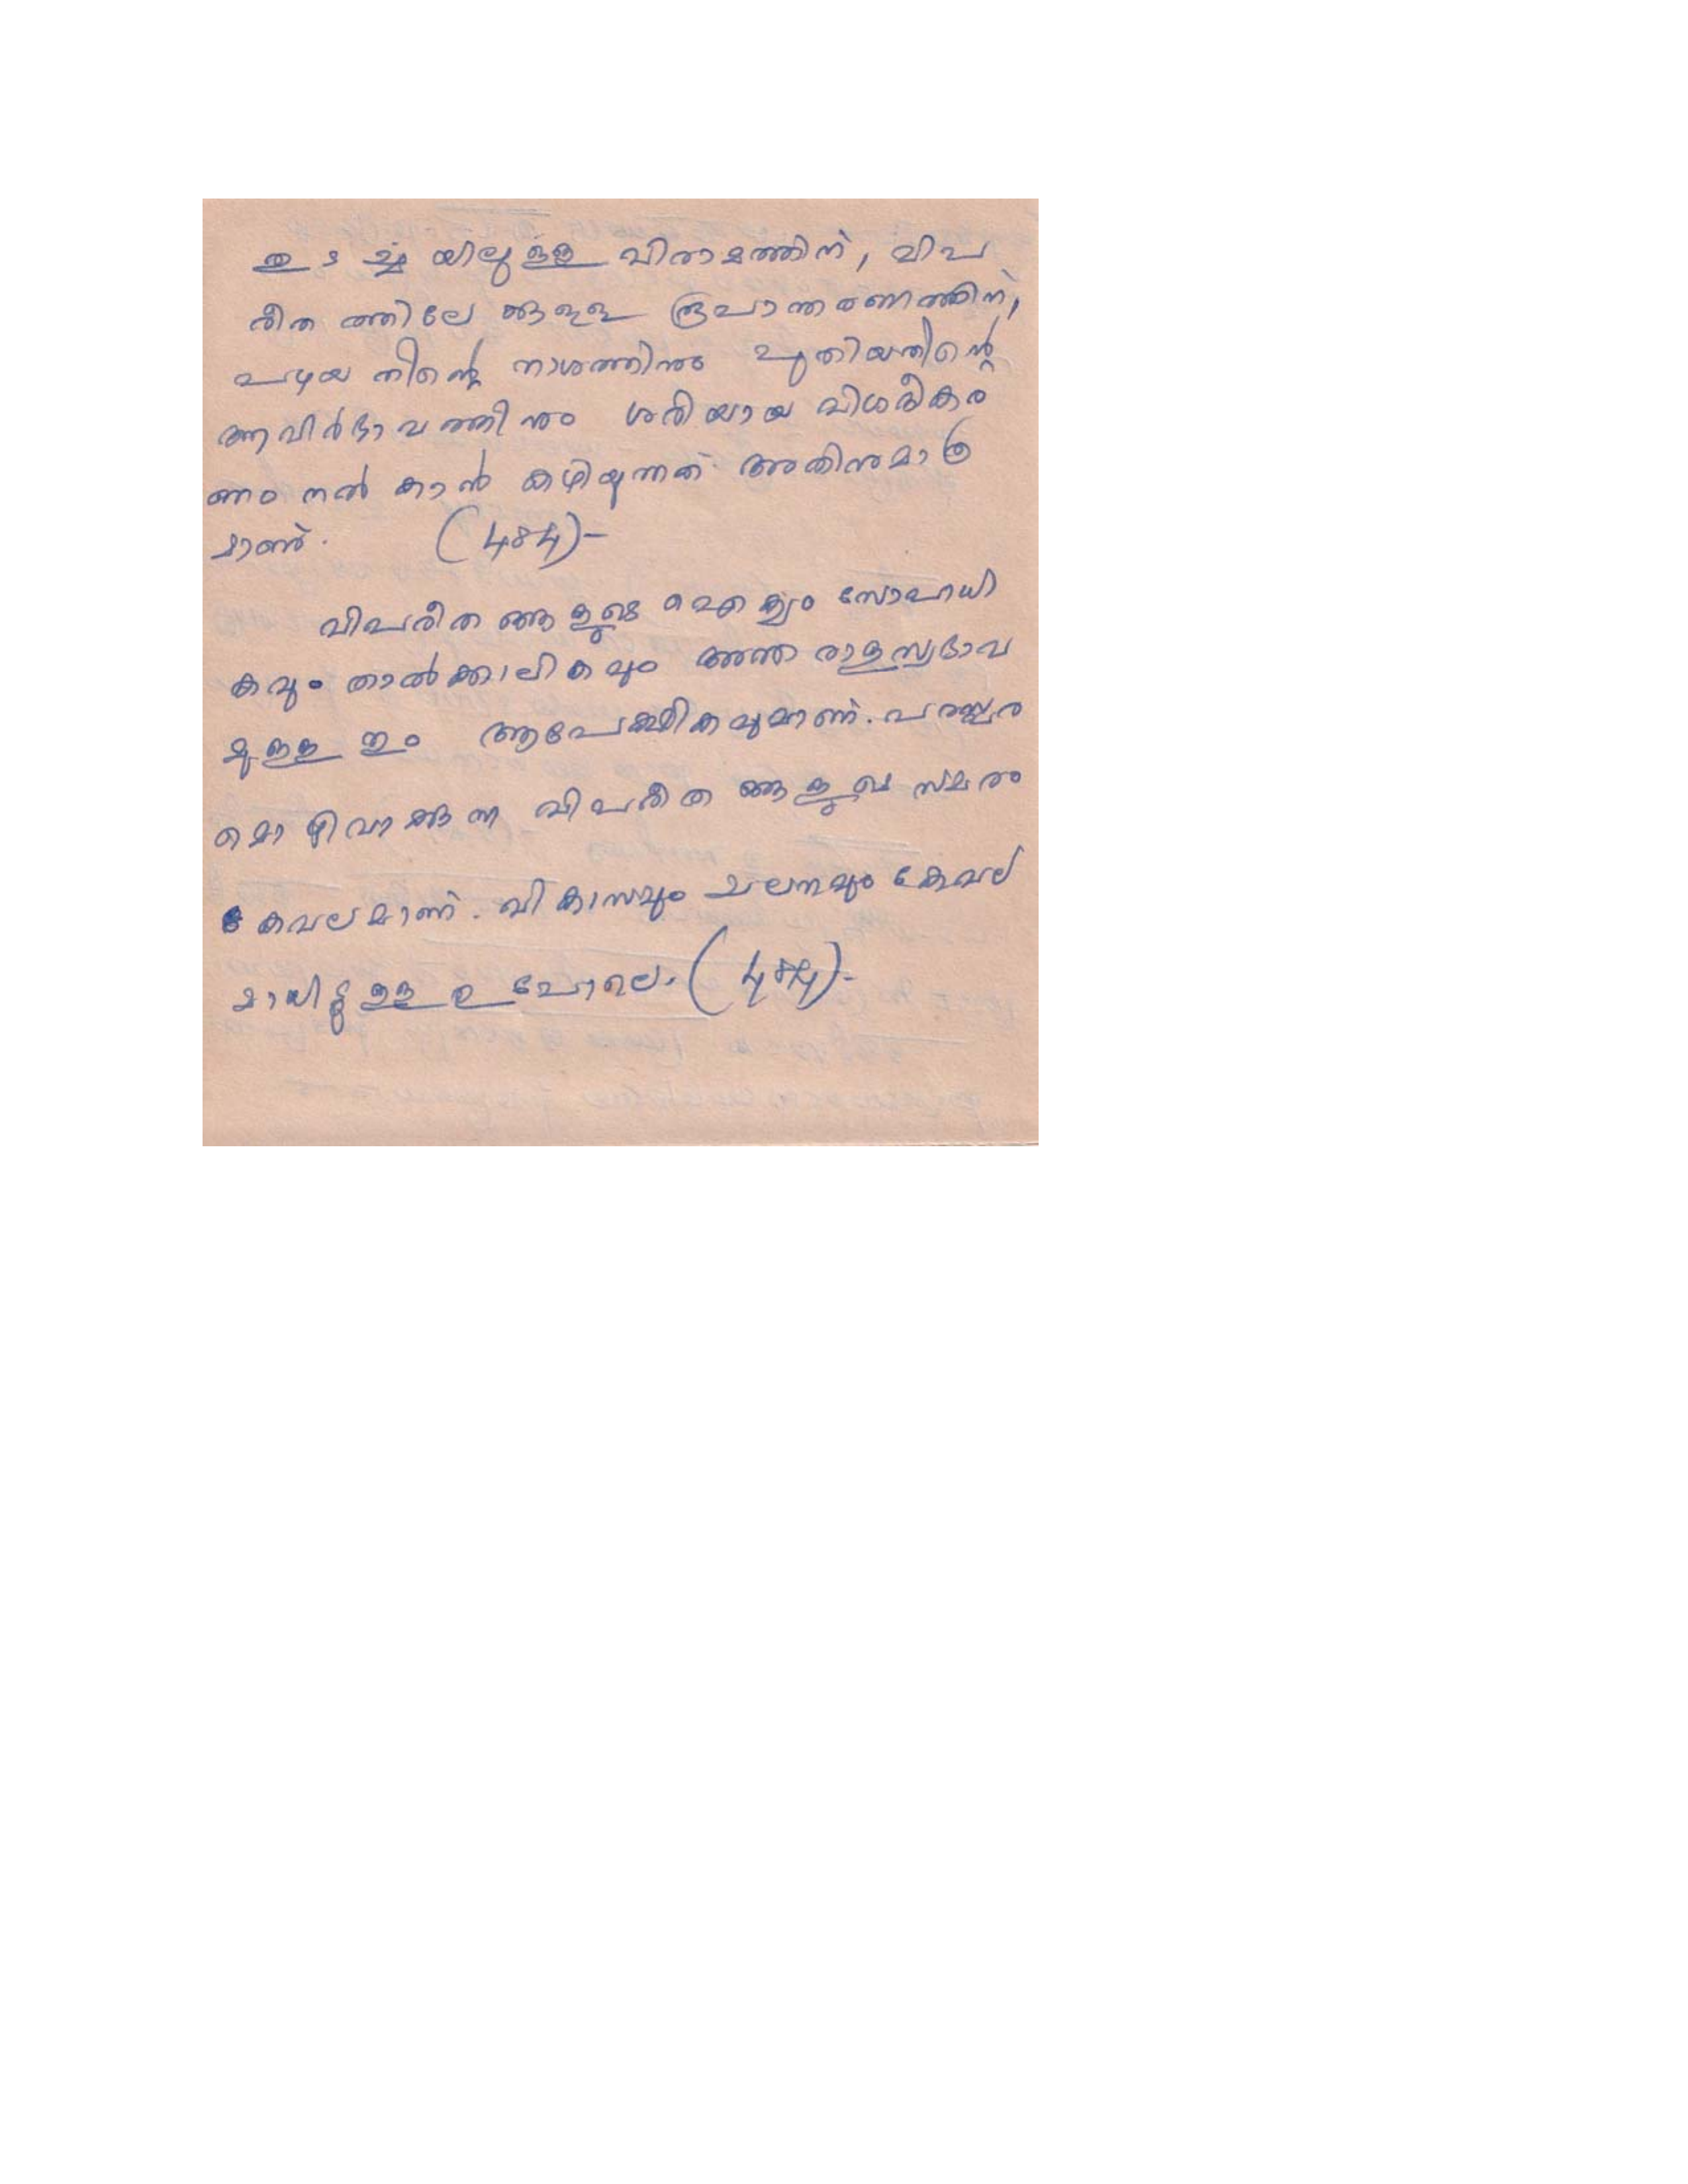 തുടർച്ചയിലുള്ള വിരാമത്തിന്, വിപ
രീതത്തിലേക്കുള്ള രൂപാന്തരണത്തിന്,
പഴയതിന്റെ നാശത്തിനും പുതിയതിന്റെ
ആവിർഭാവത്തിനും ശരിയായ വിശദീകര
ണം നൽകാൻ കഴിയുന്നത് അതിനുമാത്ര
മാണ്. (484)-
വിപരീതങ്ങളുടെ ഐക്യം സോപാധി
കവും താൽക്കാലികവും അന്തരാളസ്വഭാവ
മുള്ളതും ആപേക്ഷികവുമാണ്. പരസ്പര
മൊഴിവാക്കുന്ന വിപരീതങ്ങളുടെ സമരം
കേവലമാണ്. വികാസവും ചലനവും കേവല
മായിട്ടുള്ളതുപോലെ. (484)-